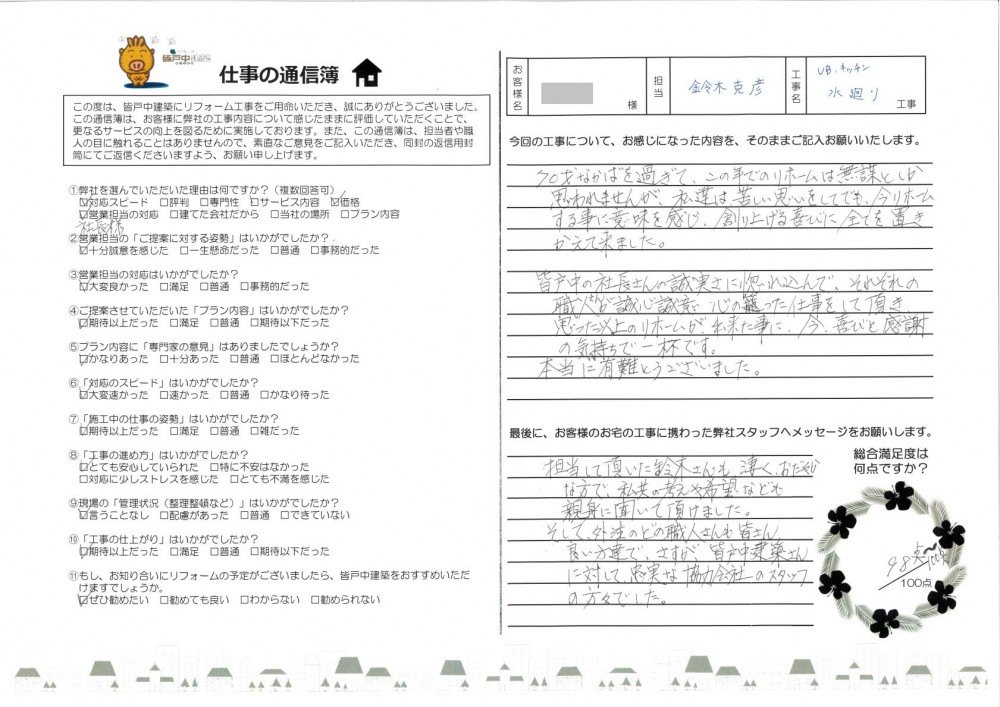 皆戸中建築
仕事の通信簿
この度は、皆戸中建築にリフォーム工事をご用命いただき、誠にありがとうございました。
この通信簿は、お客様に弊社の工事内容について感じたままに評価していただくことで、
更なるサービスの向上を図るために実施しております。また、この通信簿は、担当者や職
人の目に触れることはありませんので、素直なご意見をご記入いただき、同封の返信用封
筒にてご返信くださいますよう、お願い申し上げます。
①弊社を選んでいただいた理由は何ですか？（複数回答可）
☑対応スピード □評判 □専門性 ☑サービス内容 ☑価格
☑営業担当の対応 □建てた会社だから □当社の場所 □プラン内容
社長様
②営業担当の「ご提案に対する姿勢」はいかがでしたか？
☑十分誠意を感じた □一生懸命だった □普通 □事務的だった
③営業担当の対応はいかがでしたか？
☑大変良かった □満足 □普通 □事務的だった
④ご提案させていただいた「プラン内容」はいかがでしたか？
☑期待以上だった □満足 □普通 □期待以下だった
⑤プラン内容に「専門家の意見」はありましたでしょうか？
☑かなりあった □十分あった □普通 □ほとんどなかった
⑥「対応のスピード」はいかがでしたか？
☑大変速かった □速かった □普通 □かなり待った
⑦「施工中の仕事の姿勢」はいかがでしたか？
☑期待以上だった □満足 □普通 □雑だった
⑧「工事の進め方」はいかがでしたか？
☑とても安心していられた □特に不安はなかった
□対応に少しストレスを感じた □とても不満を感じた
⑨現場の「管理状況（整理整頓など）」はいかがでしたか？
☑言うことなし □配慮があった □普通 □できていない
⑩「工事の仕上がり」はいかがでしたか？
☑期待以上だった □満足 □普通 □期待以下だった
⑪もし、お知り合いにリフォームの予定がございましたら、皆戸中建築をおすすめいただ
けますでしょうか。
☑ぜひ勧めたい □勧めても良い □わからない □勧められない
お客様名 様 担当 鈴木克彦 工事名 UB、キッチン
水廻り 工事
今回の工事について、お感じになった内容を、そのままご記入お願いいたします。
70才なかばを過ぎて、この年でのリホームは無謀としか
思われませんが、私達は苦しい思いをしてでも、今リホーム
する事に意味を感じ、創り上げる喜びに全てを置き
かえて来ました。
皆戸中の社長さんの誠実さに惚れ込んで、それぞれの
職人さんが誠心誠意、心の籠った仕事をして頂き、
思った以上のリホームが出来た事に、今、喜びと感謝
の気持ちで一杯です。
本当に有難とうございました。
最後に、お客様のお宅の工事に携わった弊社スタッフへメッセージをお願いします。
担当して頂いた鈴木さんも、凄く、おだやか
な方で、私共の考えや希望なども
親身に聞いて頂けました。
そして、外注のどの職人さんも皆さん
良い方達で、さすが、皆戸中建築さん
に対して、忠実な協力会社のスタッフ
の方々でした。
総合満足度は
何点ですか？
98点〜100点
100点